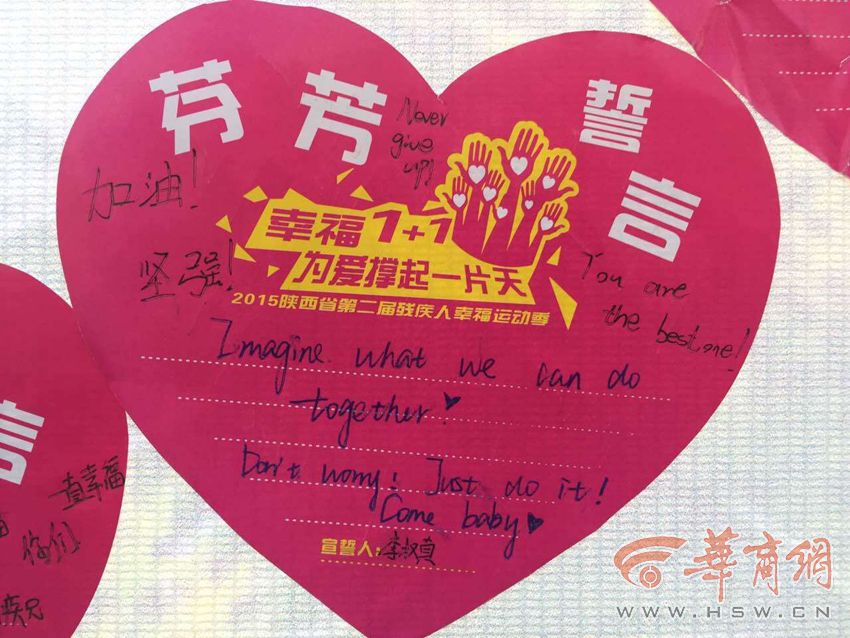 芬芳誓言
Never
give
up!
加油!
坚强!
幸福1+1
为爱撑起一片天
2015陕西省第二届残疾人幸福运动季
You are
the best one!
Imagine what we can do
together!
Don't worry! Just do it!
Come baby
宣誓人:
言
一直幸福
你们
華商網
WWW.HSW.CN